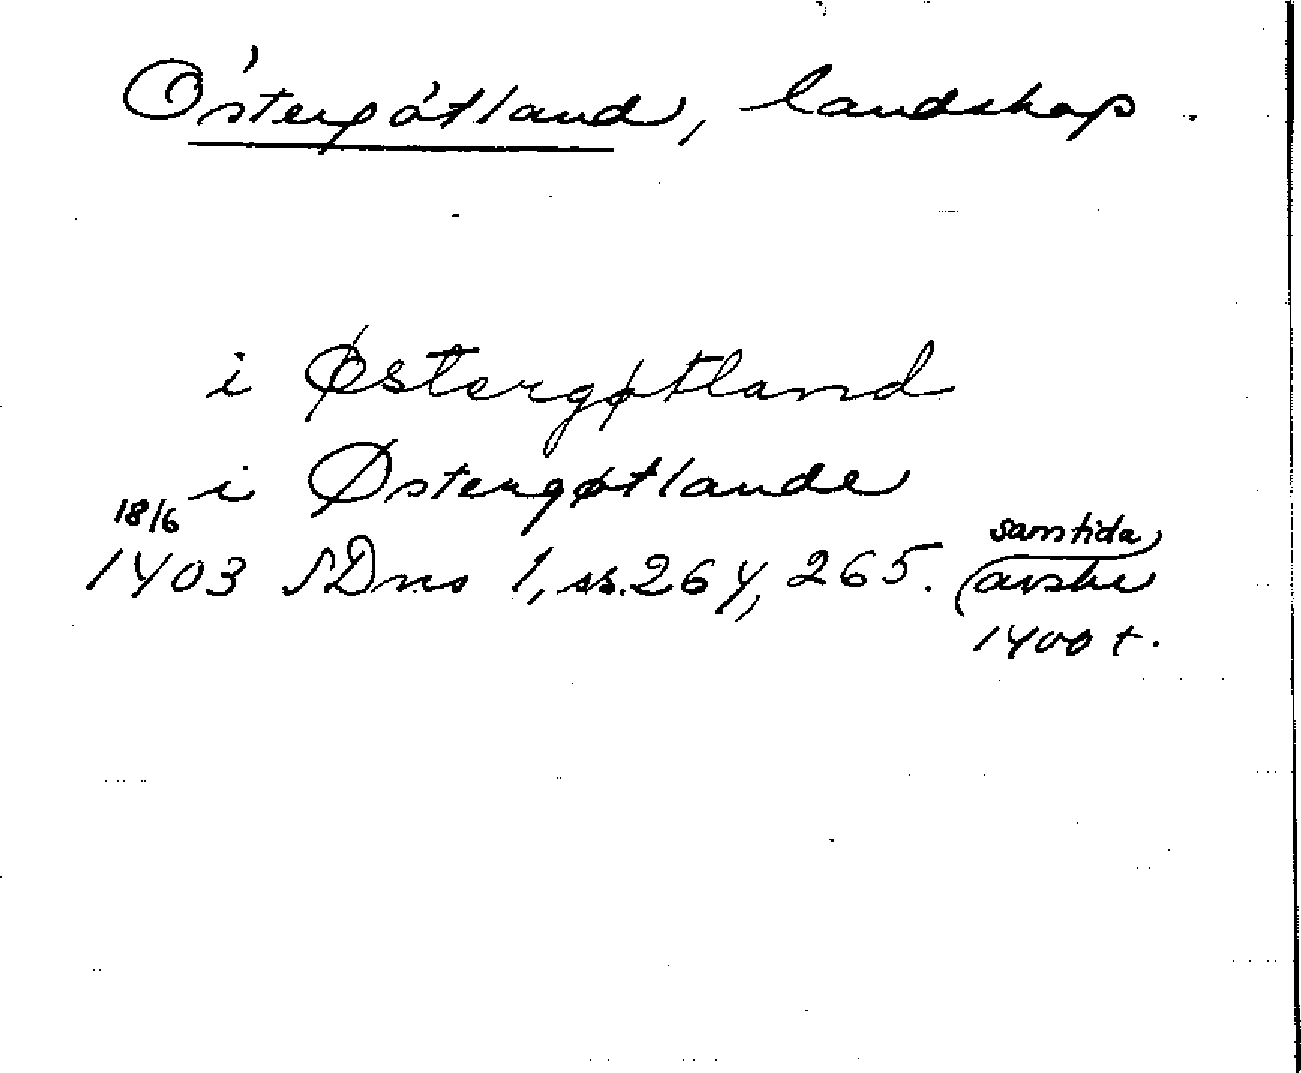 Östergötland, landskap.
i Østergøtland
i Østergøtlande
18/6
1403 SDns 1, ss. 264, 265. (samtida)
avskr
1400 t.